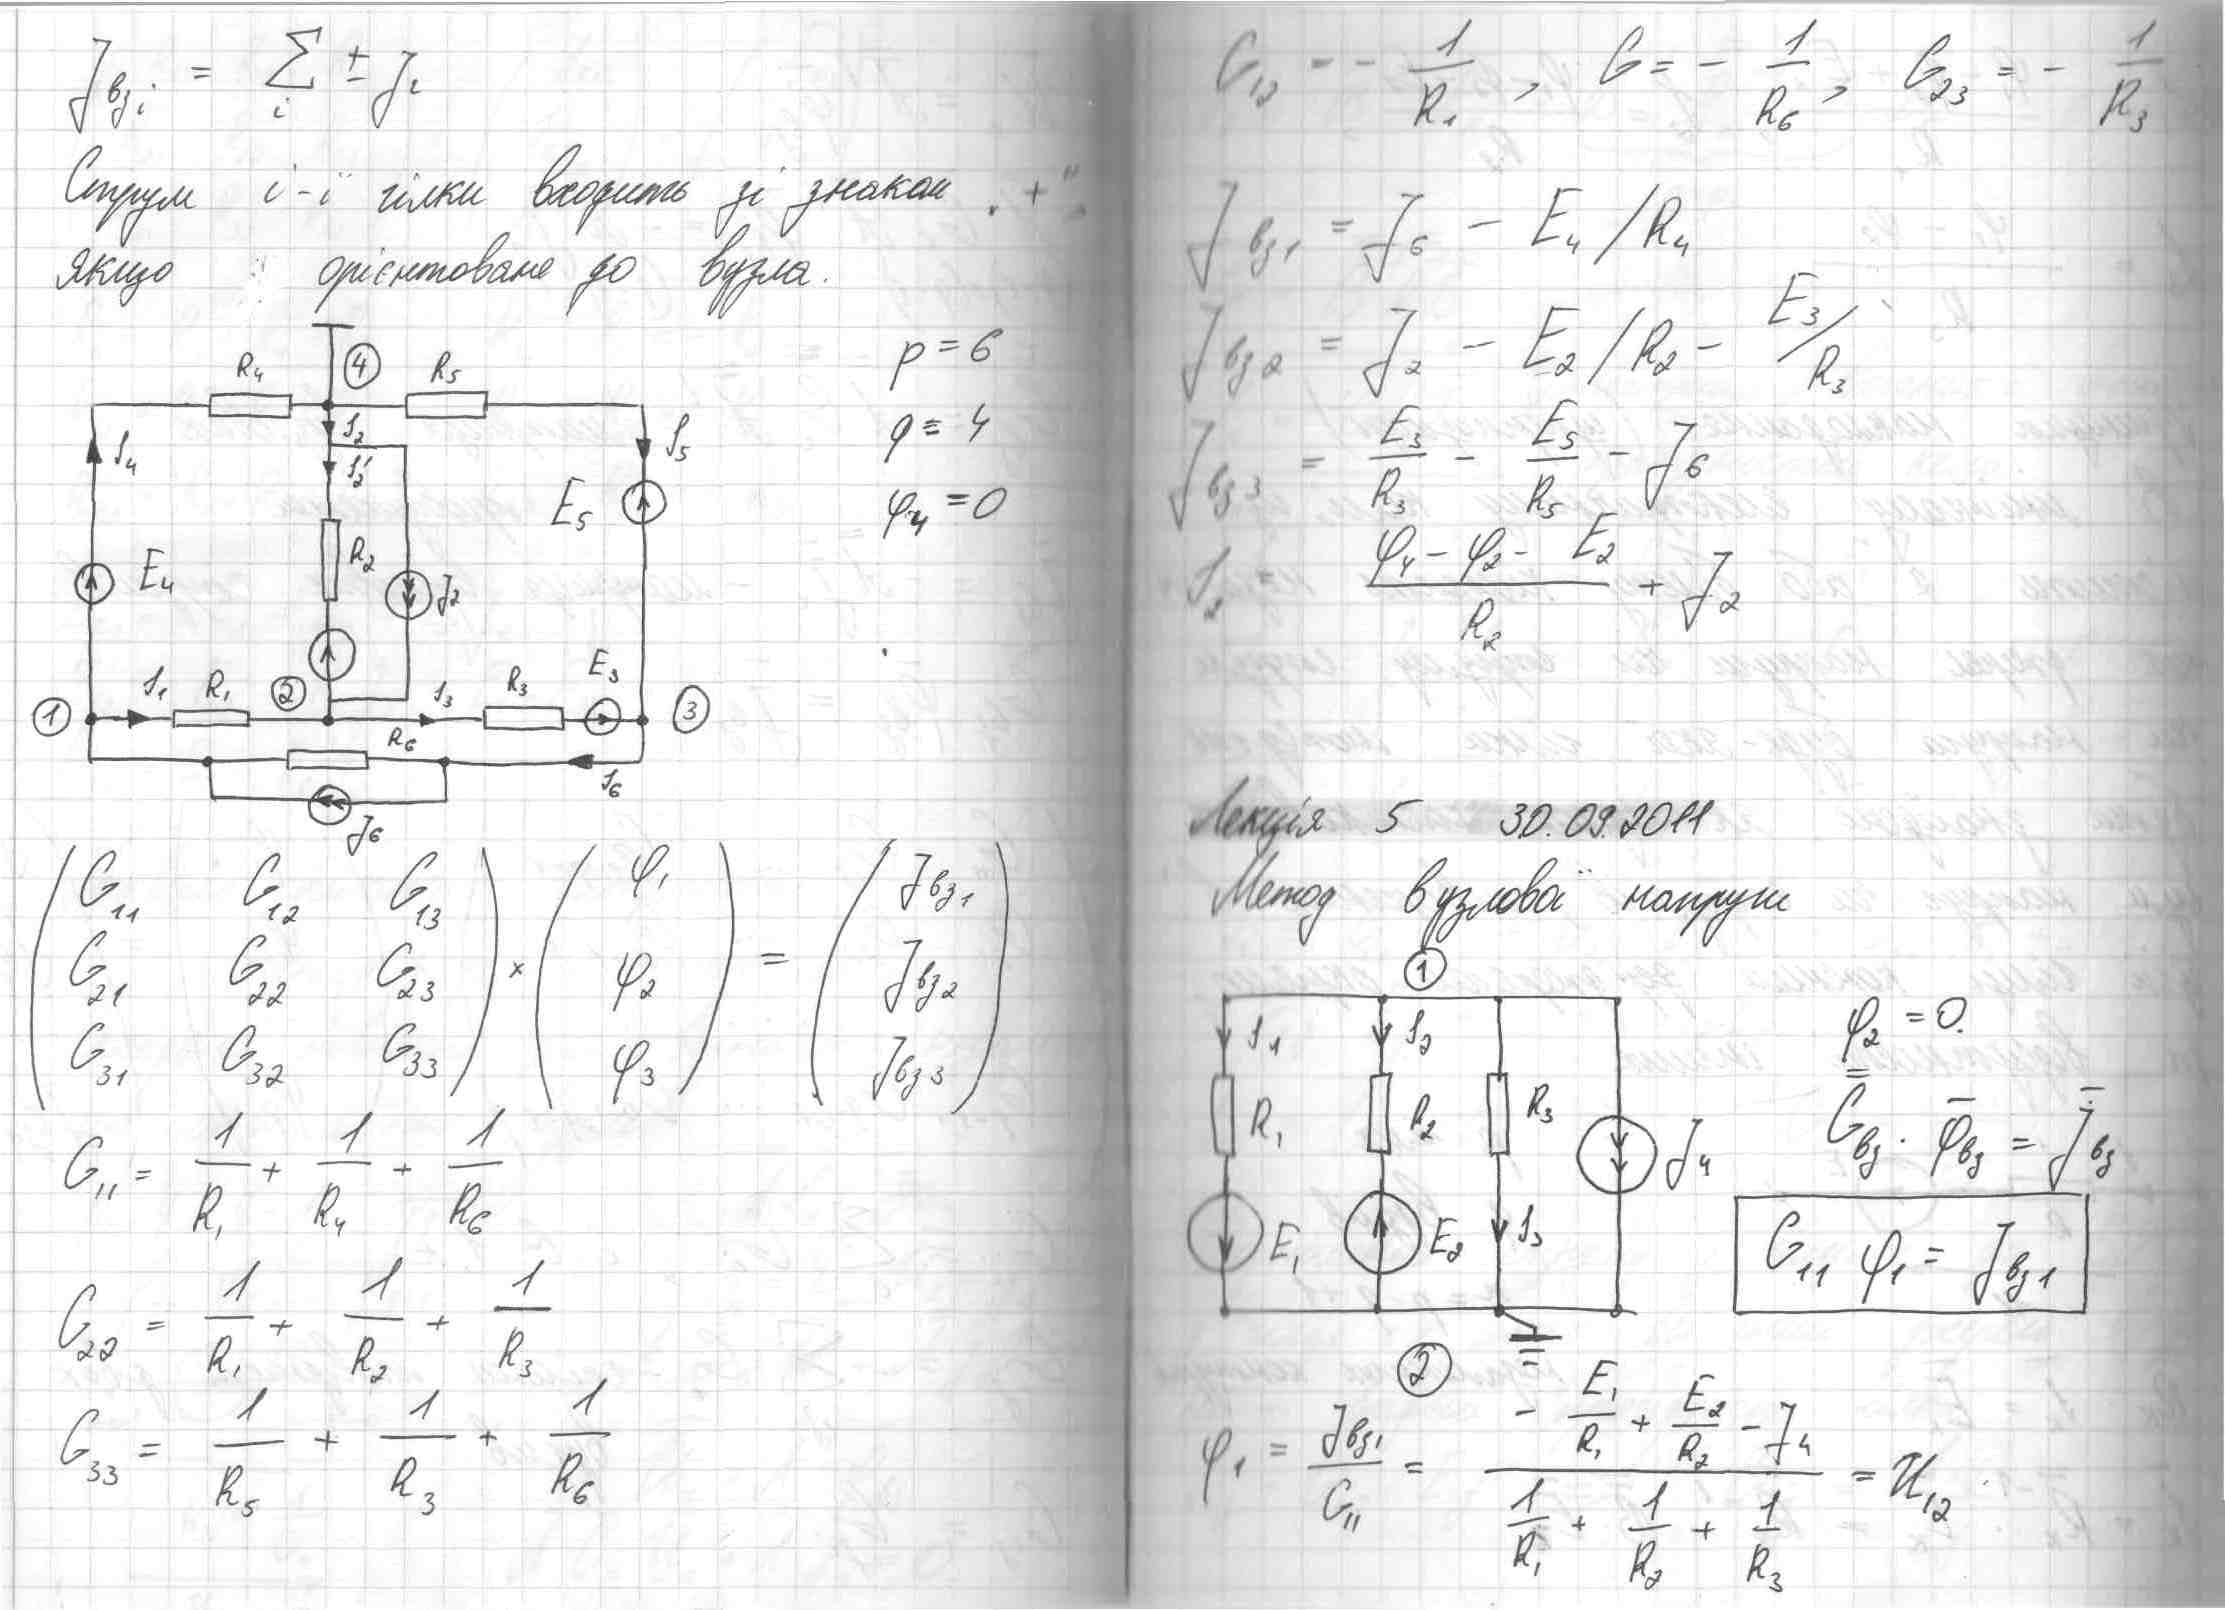 J вз i = Σ i ± J i
Струм і-ї гілки входить зі знаком „+"
якщо орієнтоване до вузла.
R4 ④ R5
I2
I4 I2' I5
R2 E5
E4 J2
I1 R1 ② I3 R3 E3
① ③
R6
I6
J6
p = 6
q = 4
φ4 = 0
( G11 G12 G13 ) ( φ1 ) ( Jвз1 )
( G21 G22 G23 ) × ( φ2 ) = ( Jвз2 )
( G31 G32 G33 ) ( φ3 ) ( Jвз3 )
G11 = 1/R1 + 1/R4 + 1/R6
G22 = 1/R1 + 1/R2 + 1/R3
G33 = 1/R5 + 1/R3 + 1/R6
G12 = - 1/R1 , G = - 1/R6 , G23 = - 1/R3
Jвз1 = J6 - E4/R4
Jвз2 = J2 - E2/R2 - E3/R3
Jвз3 = E3/R3 - E5/R5 - J6
I2 = (φ4 - φ2 - E2)/R2 + J2
Лекція 5 30.09.2011
Метод вузлової напруги
①
I1 I2
R1 R2 R3 J4
E1 E2 I3
②
φ2 = 0.
G̿вз · φ̄вз = J̄вз
G11 φ1 = Jвз1
φ1 = Jвз1/G11 = (- E1/R1 + E2/R2 - J4)/(1/R1 + 1/R2 + 1/R3) = U12